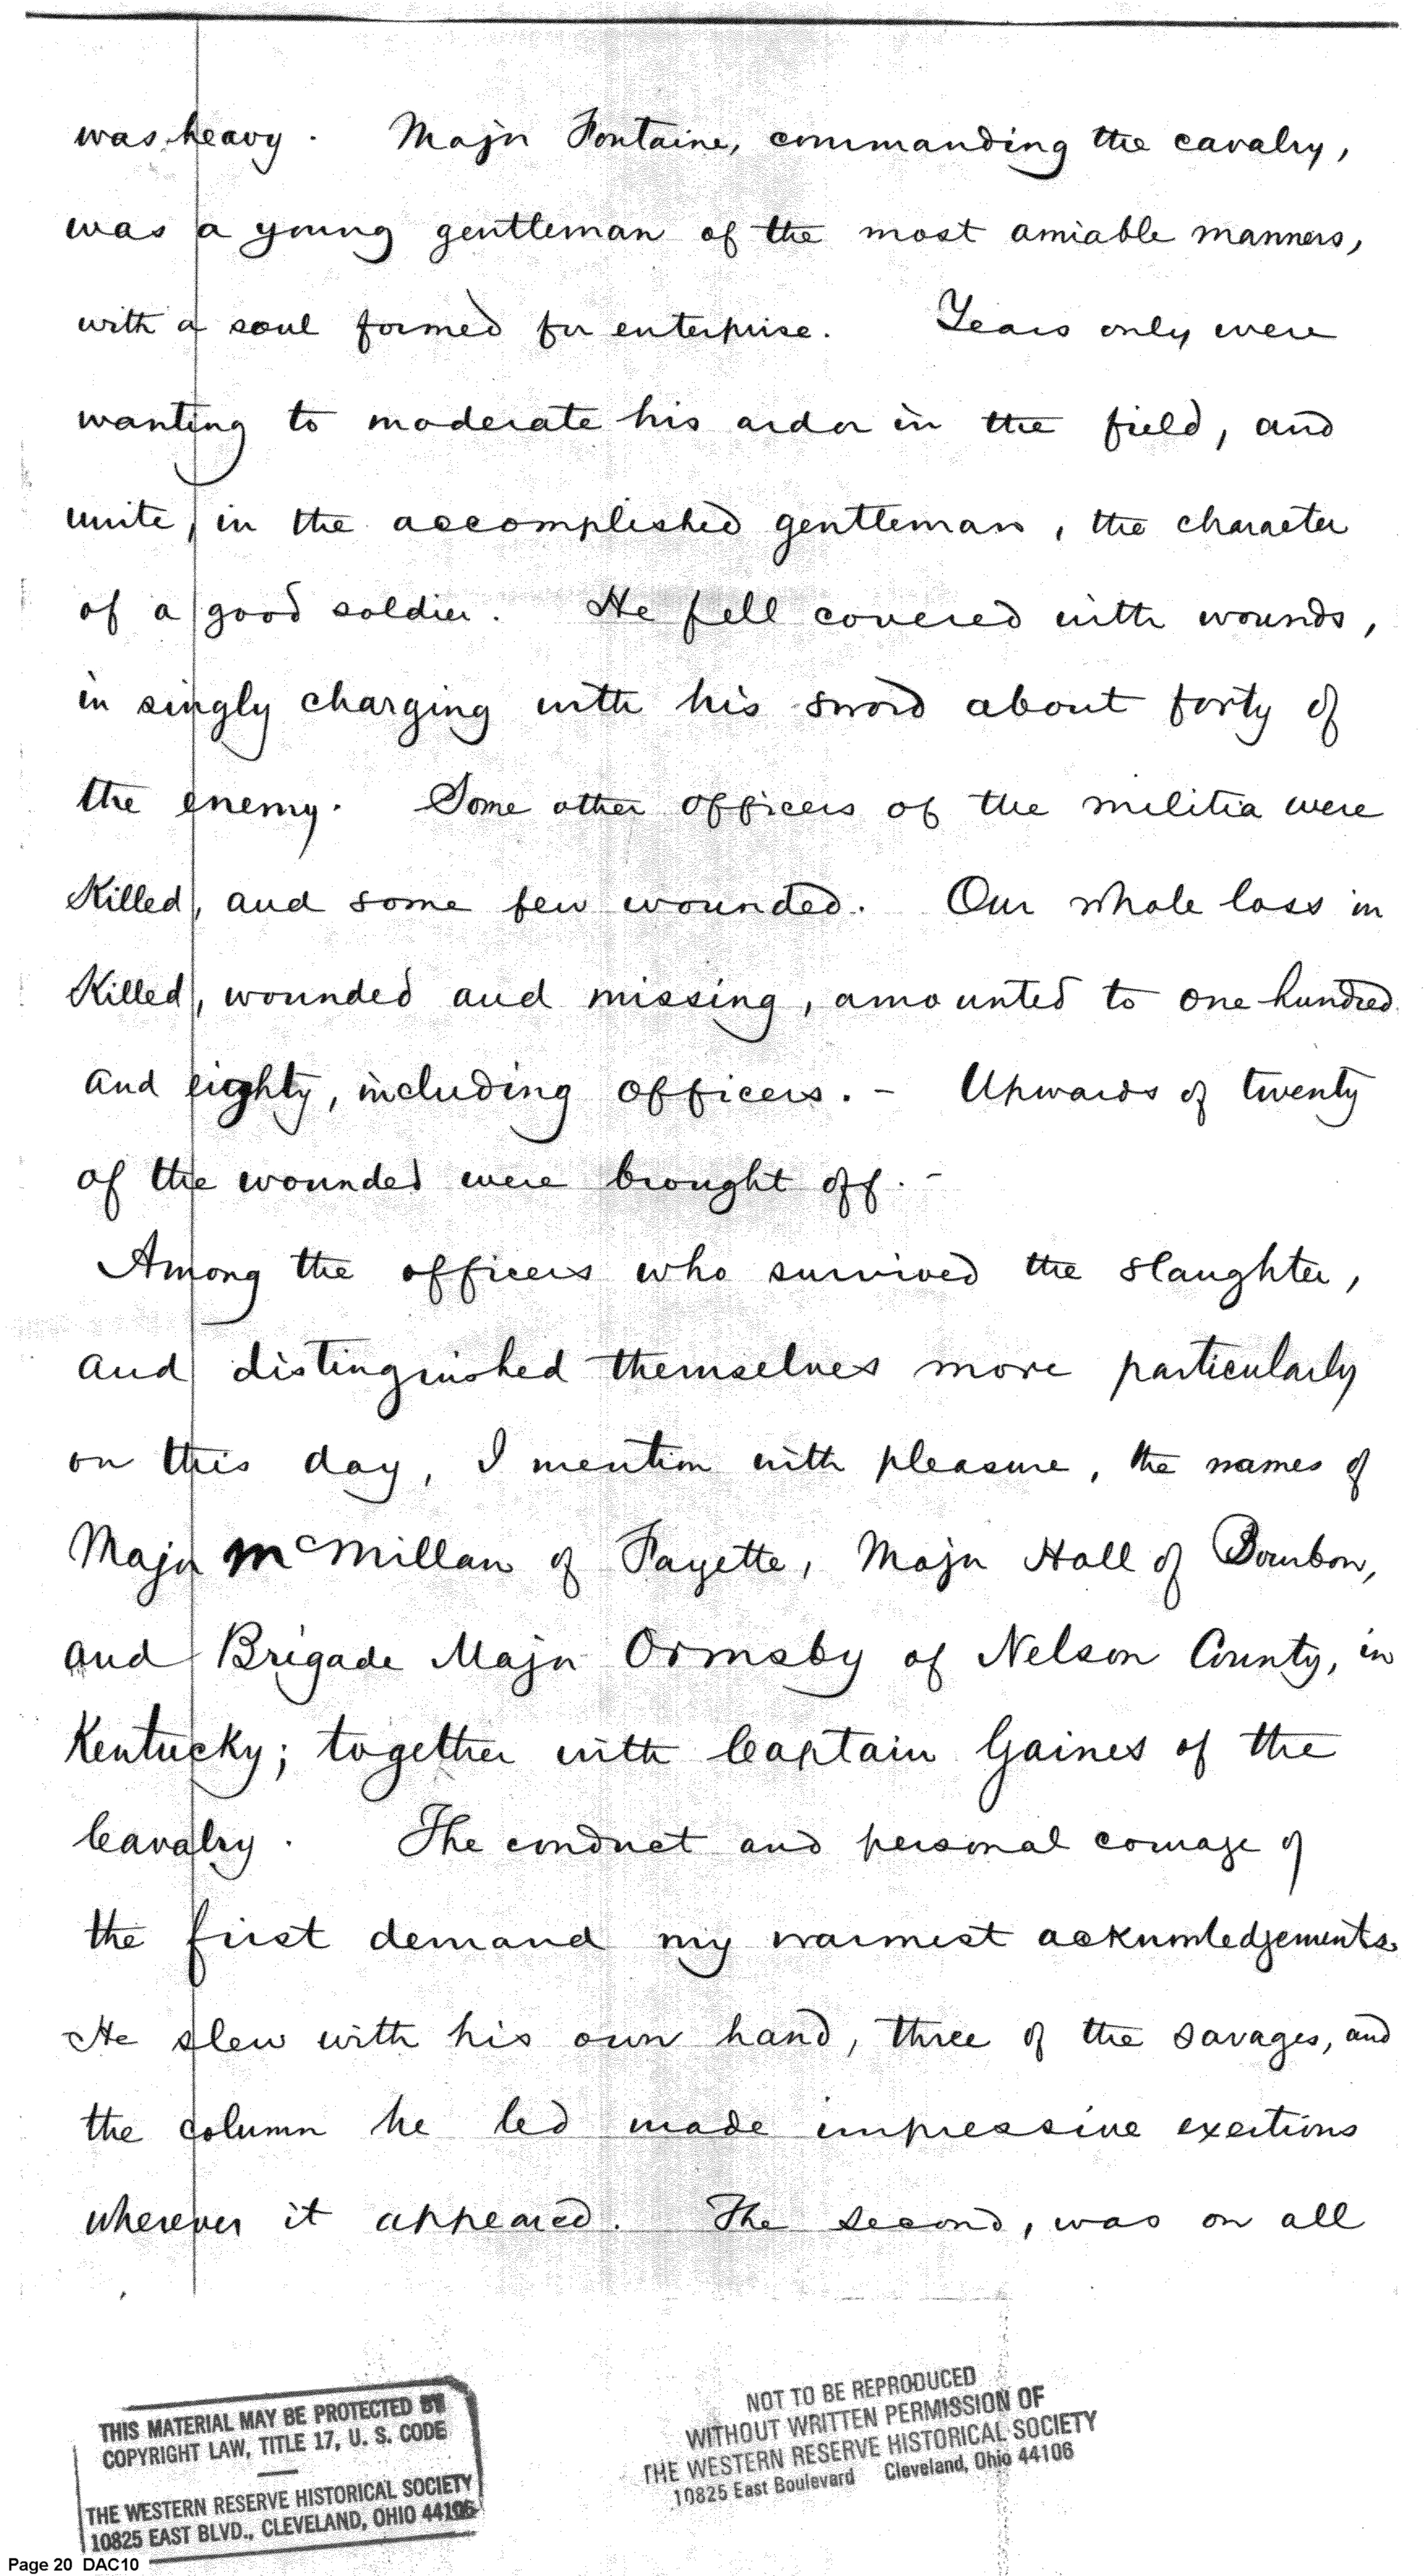 was heavy. Major Fontaine, commanding the cavalry,
was a young gentleman of the most amiable manners,
with a soul formed for enterprise. Years only were
wanting to moderate his ardor in the field, and
unite, in the accomplished gentleman, the character
of a good soldier. He fell covered with wounds,
in singly charging with his sword about forty of
the enemy. Some other officers of the militia were
Killed, and some few wounded. Our whole loss in
Killed, wounded and missing, amounted to one hundred
and eighty, including officers. - Upwards of twenty
of the wounded were brought off. -
Among the officers who survived the slaughter,
and distinguished themselves more particularly
on this day, I mention with pleasure, the names of
Major McMillan of Fayette, Major Hall of Bourbon,
and Brigade Major Ormsby of Nelson County, in
Kentucky; together with Captain Gaines of the
Cavalry. The conduct and personal courage of
the first demand my warmest acknowledgements.
He slew with his own hand, three of the savages, and
the column he led made impressive exertions
wherever it appeared. The second, was on all
THIS MATERIAL MAY BE PROTECTED BY
COPYRIGHT LAW, TITLE 17, U. S. CODE
THE WESTERN RESERVE HISTORICAL SOCIETY
10825 EAST BLVD., CLEVELAND, OHIO 44106
NOT TO BE REPRODUCED
WITHOUT WRITTEN PERMISSION OF
THE WESTERN RESERVE HISTORICAL SOCIETY
10825 East Boulevard Cleveland, Ohio 44106
Page 20 DAC10